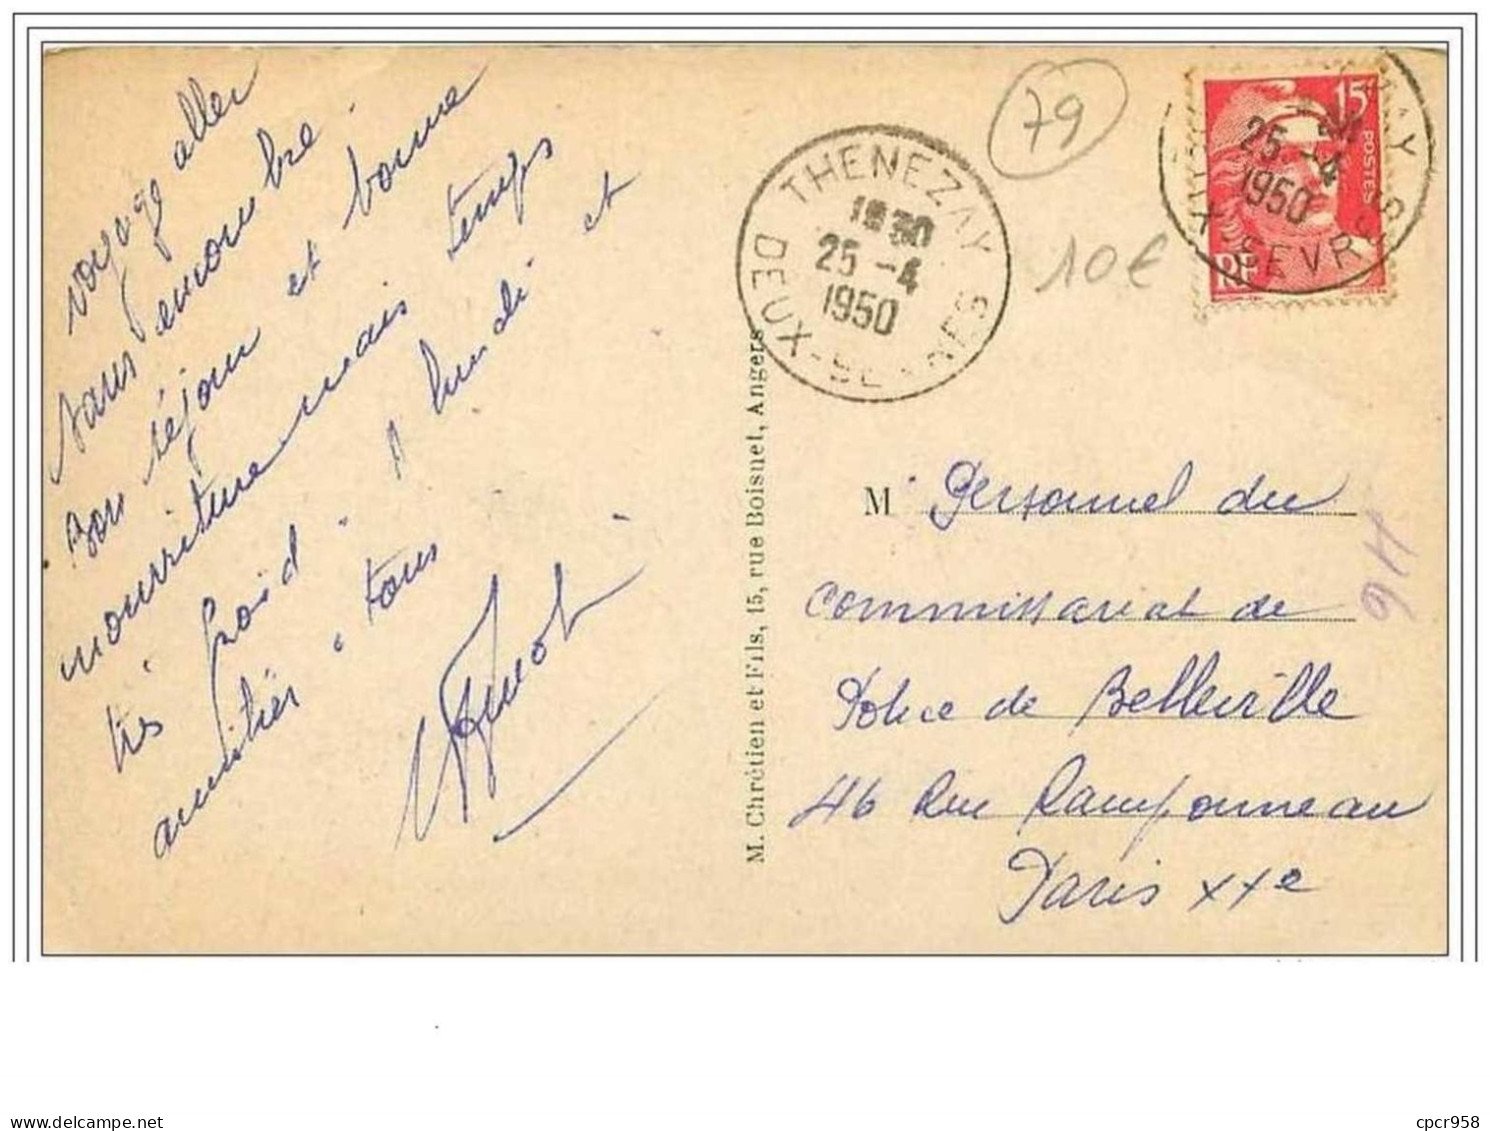 voyage aller
sans encombre.
Bon séjour et bonne
nourriture mais temps
très froid. A lundi et
amitiés à tous
79
10€
THENEZAY
25 -4
1950
DEUX-SEVRES
15F
POSTES
RF
25 -4
1950
M. Chrétien et Fils, 15, rue Boisnet, Angers
M Personnel du
commissariat de
Police de Belleville
46 Rue Ramponneau
Paris XXe
cpcr958